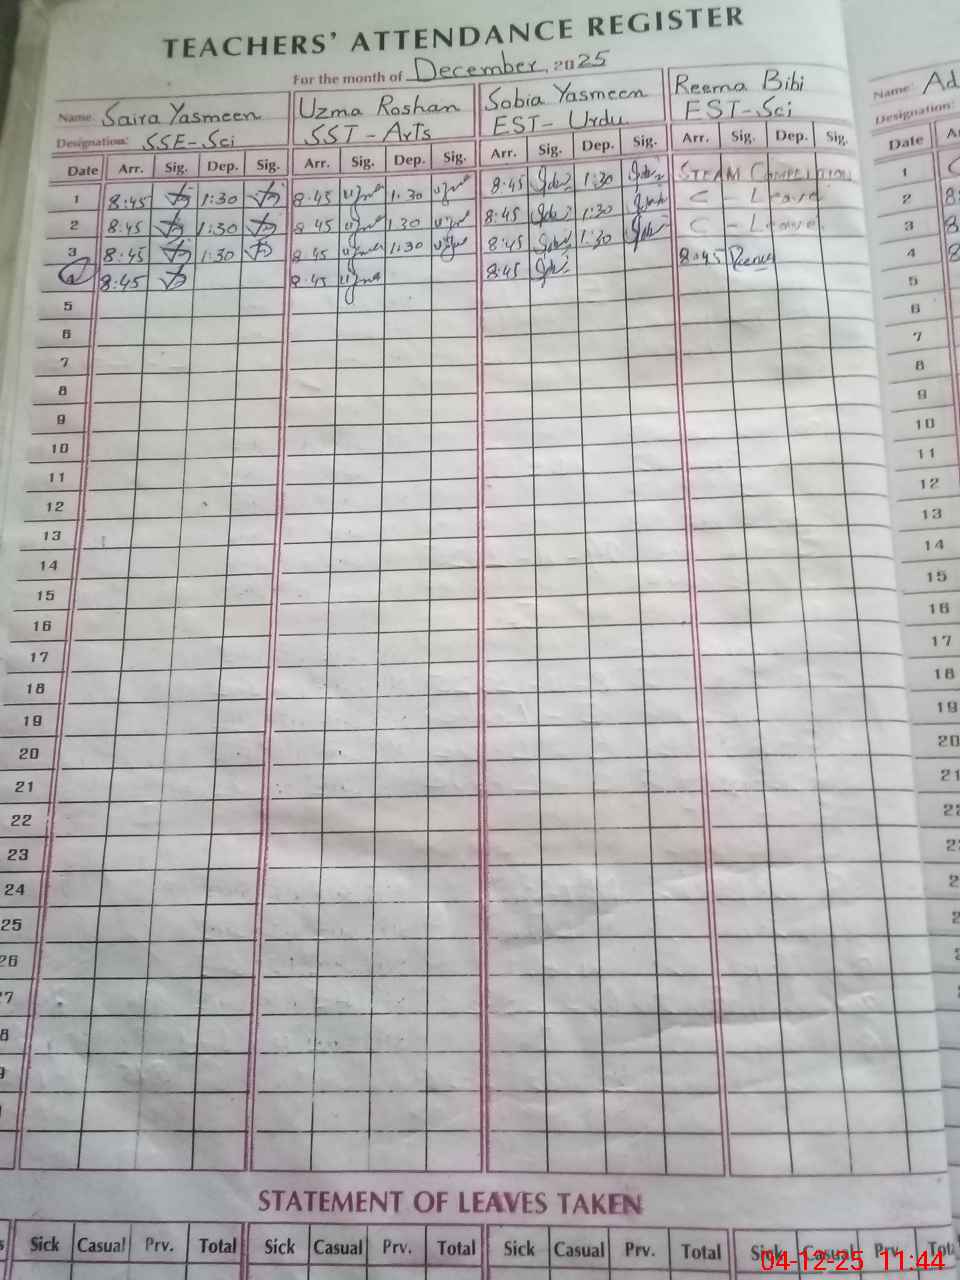 TEACHERS' ATTENDANCE REGISTER
For the month of December, 2025
Name Saira Yasmeen Uzma Roshan Sobia Yasmeen Reema Bibi Name: Ad
Designation: SSE-Sci SST-Arts EST-Urdu EST-Sci Designation:
Date Arr. Sig. Dep. Sig. Arr. Sig. Dep. Sig. Arr. Sig. Dep. Sig. Arr. Sig. Dep. Sig. Date
1 8:45 1:30 8:45 1:30 8:45 1:30 STEAM 1
2 8:45 1:30 8:45 1:30 8:45 1:30 C - Leave 2 8:
3 8:45 1:30 8:45 1:30 8:45 1:30 C - Leave 3 8
8:45 8:45 8:45 8:45 4 8
5 5
6 6
7 7
8 8
9 9
10 10
11 11
12 12
13 13
14 14
15 15
16 16
17 17
18 18
19 19
20 20
21 21
22 22
23 23
24 2
25 2
26 2
7
8
9
STATEMENT OF LEAVES TAKEN
Sick Casual Prv. Total Sick Casual Prv. Total Sick Casual Prv. Total Sick Casual Prv. Total
04-12-25 11:44